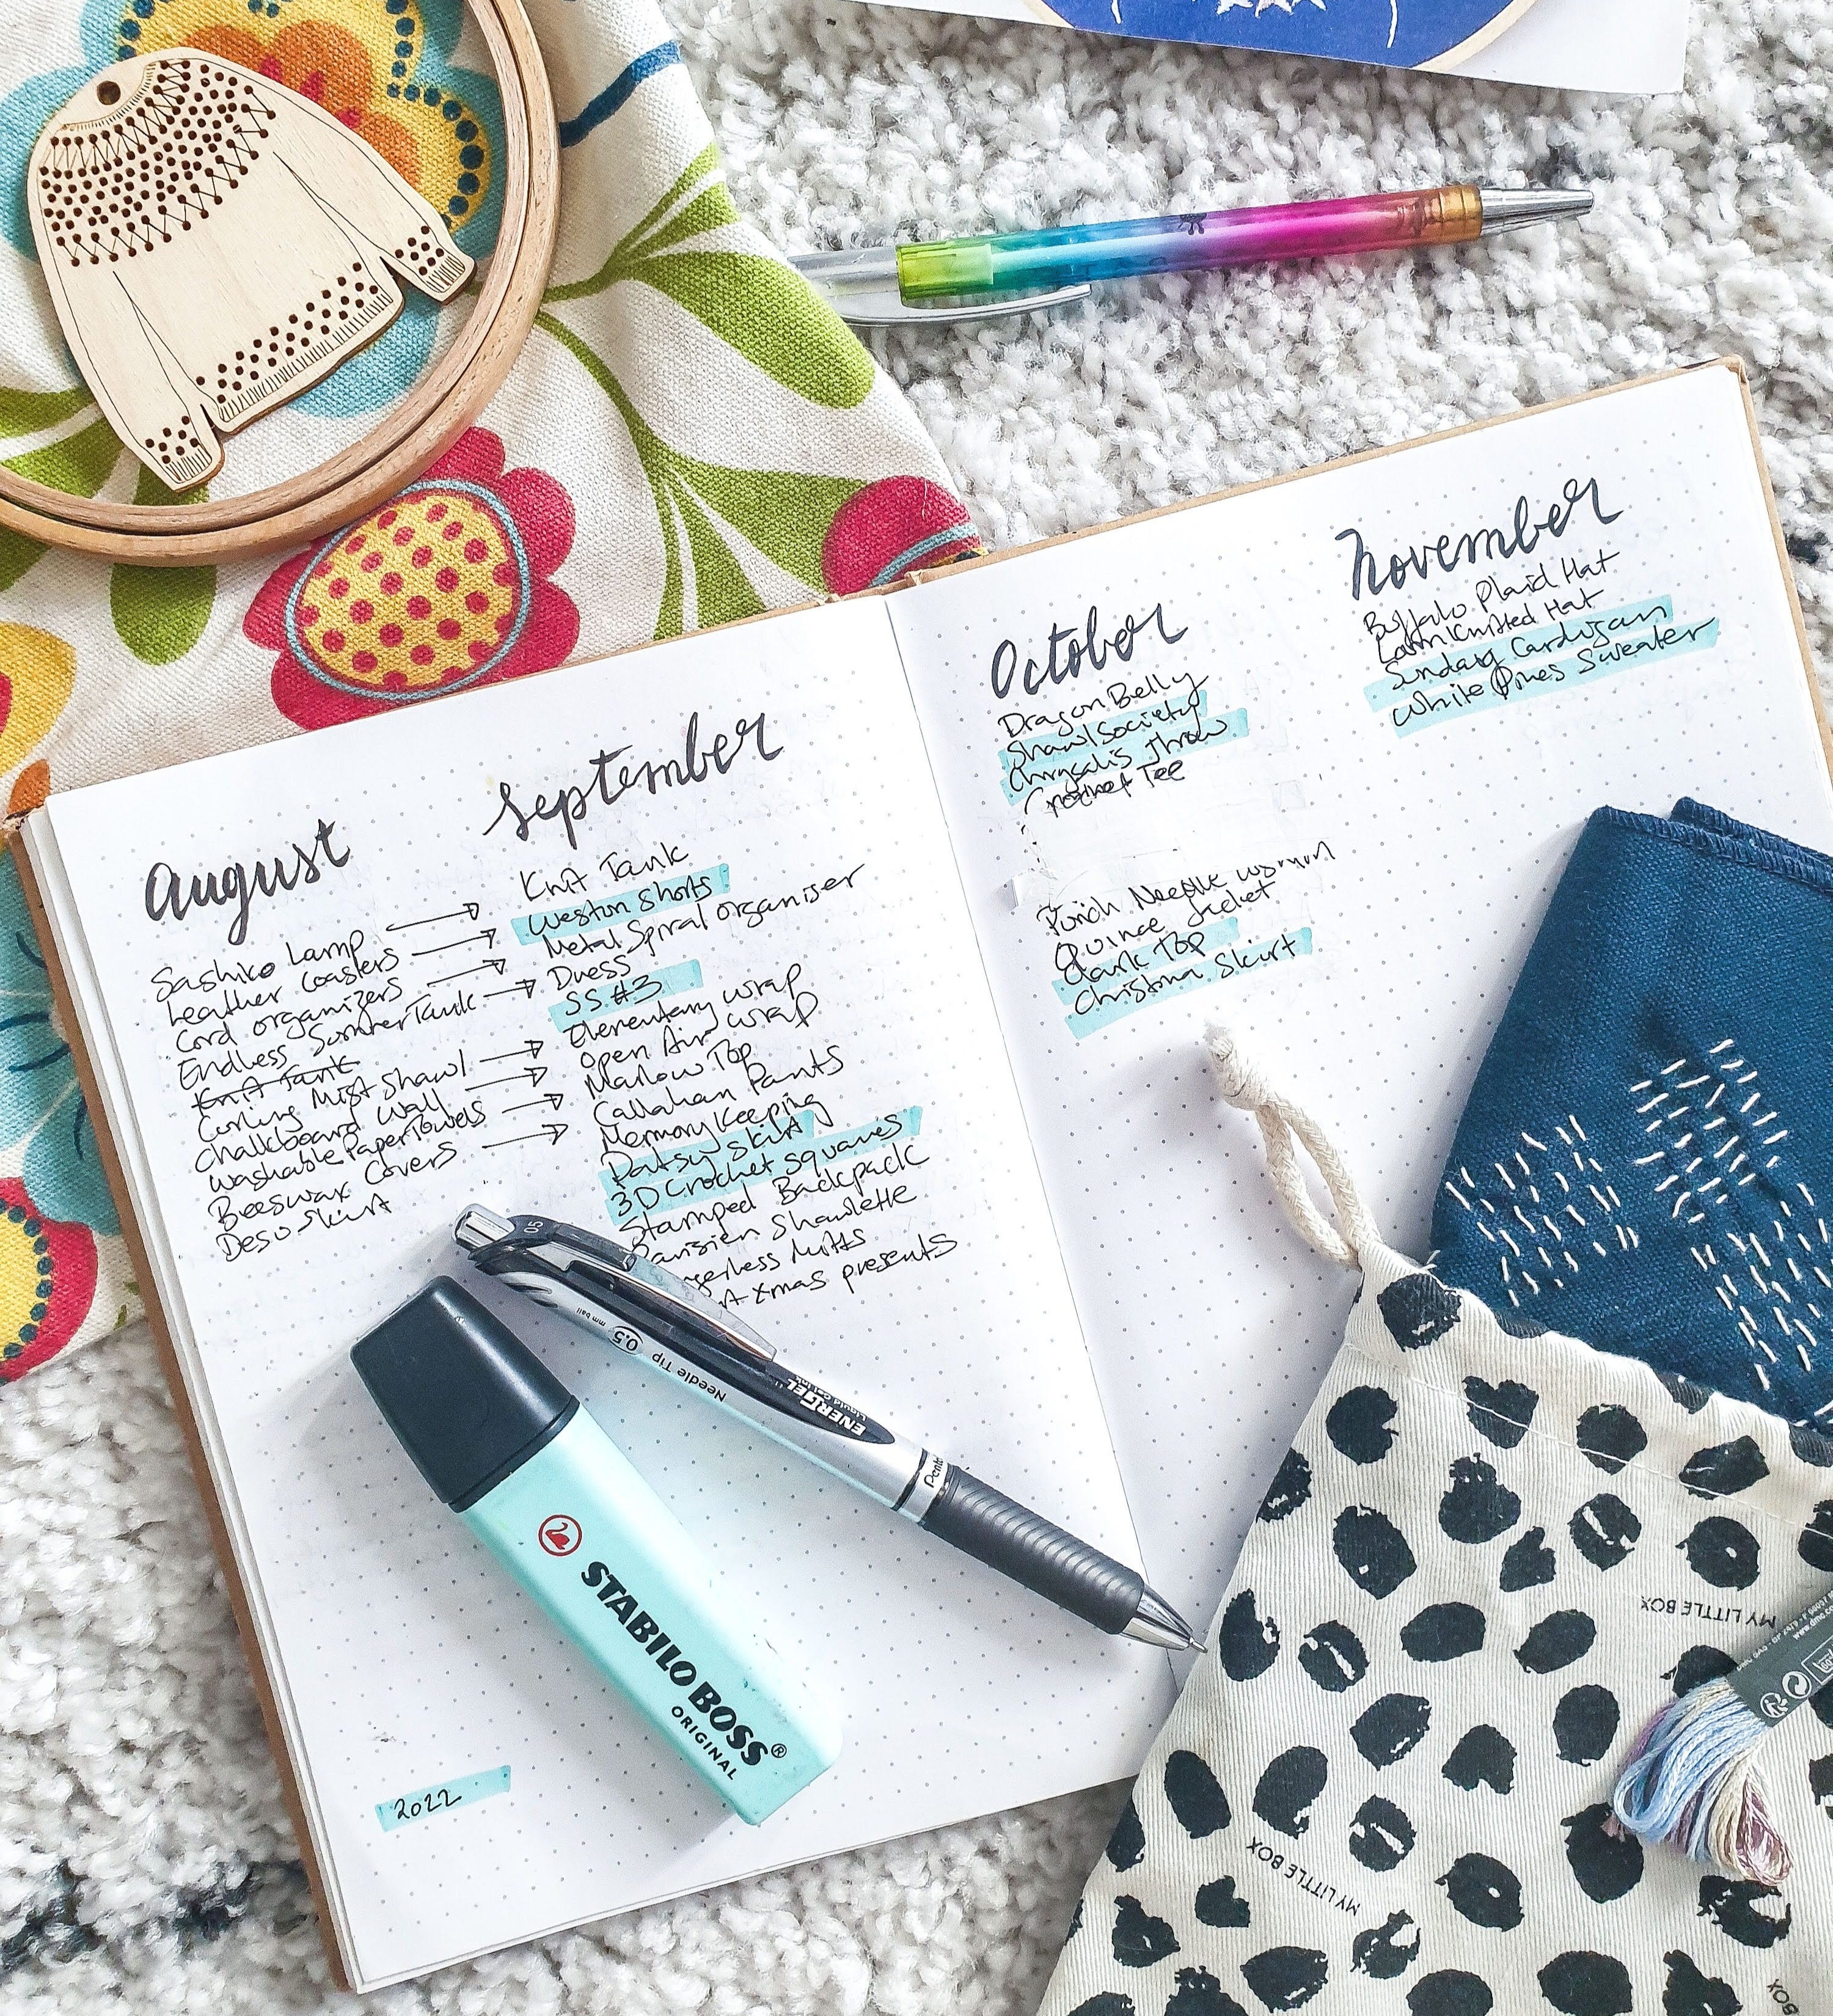 August
Sashiko Lamp
Leather Coasters
Cord organizers
Endless Summer Tank
Knit Tank
Curling Mist Shawl
Chalkboard Wall
Washable Paper Towels
Beeswax Covers
Deso Skirt
2022
September
Knit Tank
Weston Shorts
Metal Spiral organiser
Dress
SS #3
Elementary wrap
Open Air wrap
Marlow Top
Callahan Pants
Memory Keeping
Patsy Skirt
3D Crochet squares
Stamped Backpack
Parisien Shawlette
Mitts
Xmas presents
October
Dragon Belly
Shawl Society
Chrysalis Throw
Crochet Tee
Punch Needle
Quince Jacket
Top
Skirt
November
Buffalo Plaid Hat
Knitted Hat
Sunday Cardigan
White Pines Sweater
05
0.5 mm ball
Needle Tip
ENERGEL
Liquid Gel Ink
STABILO BOSS®
ORIGINAL
MY LITTLE BOX
MY LITTLE BOX